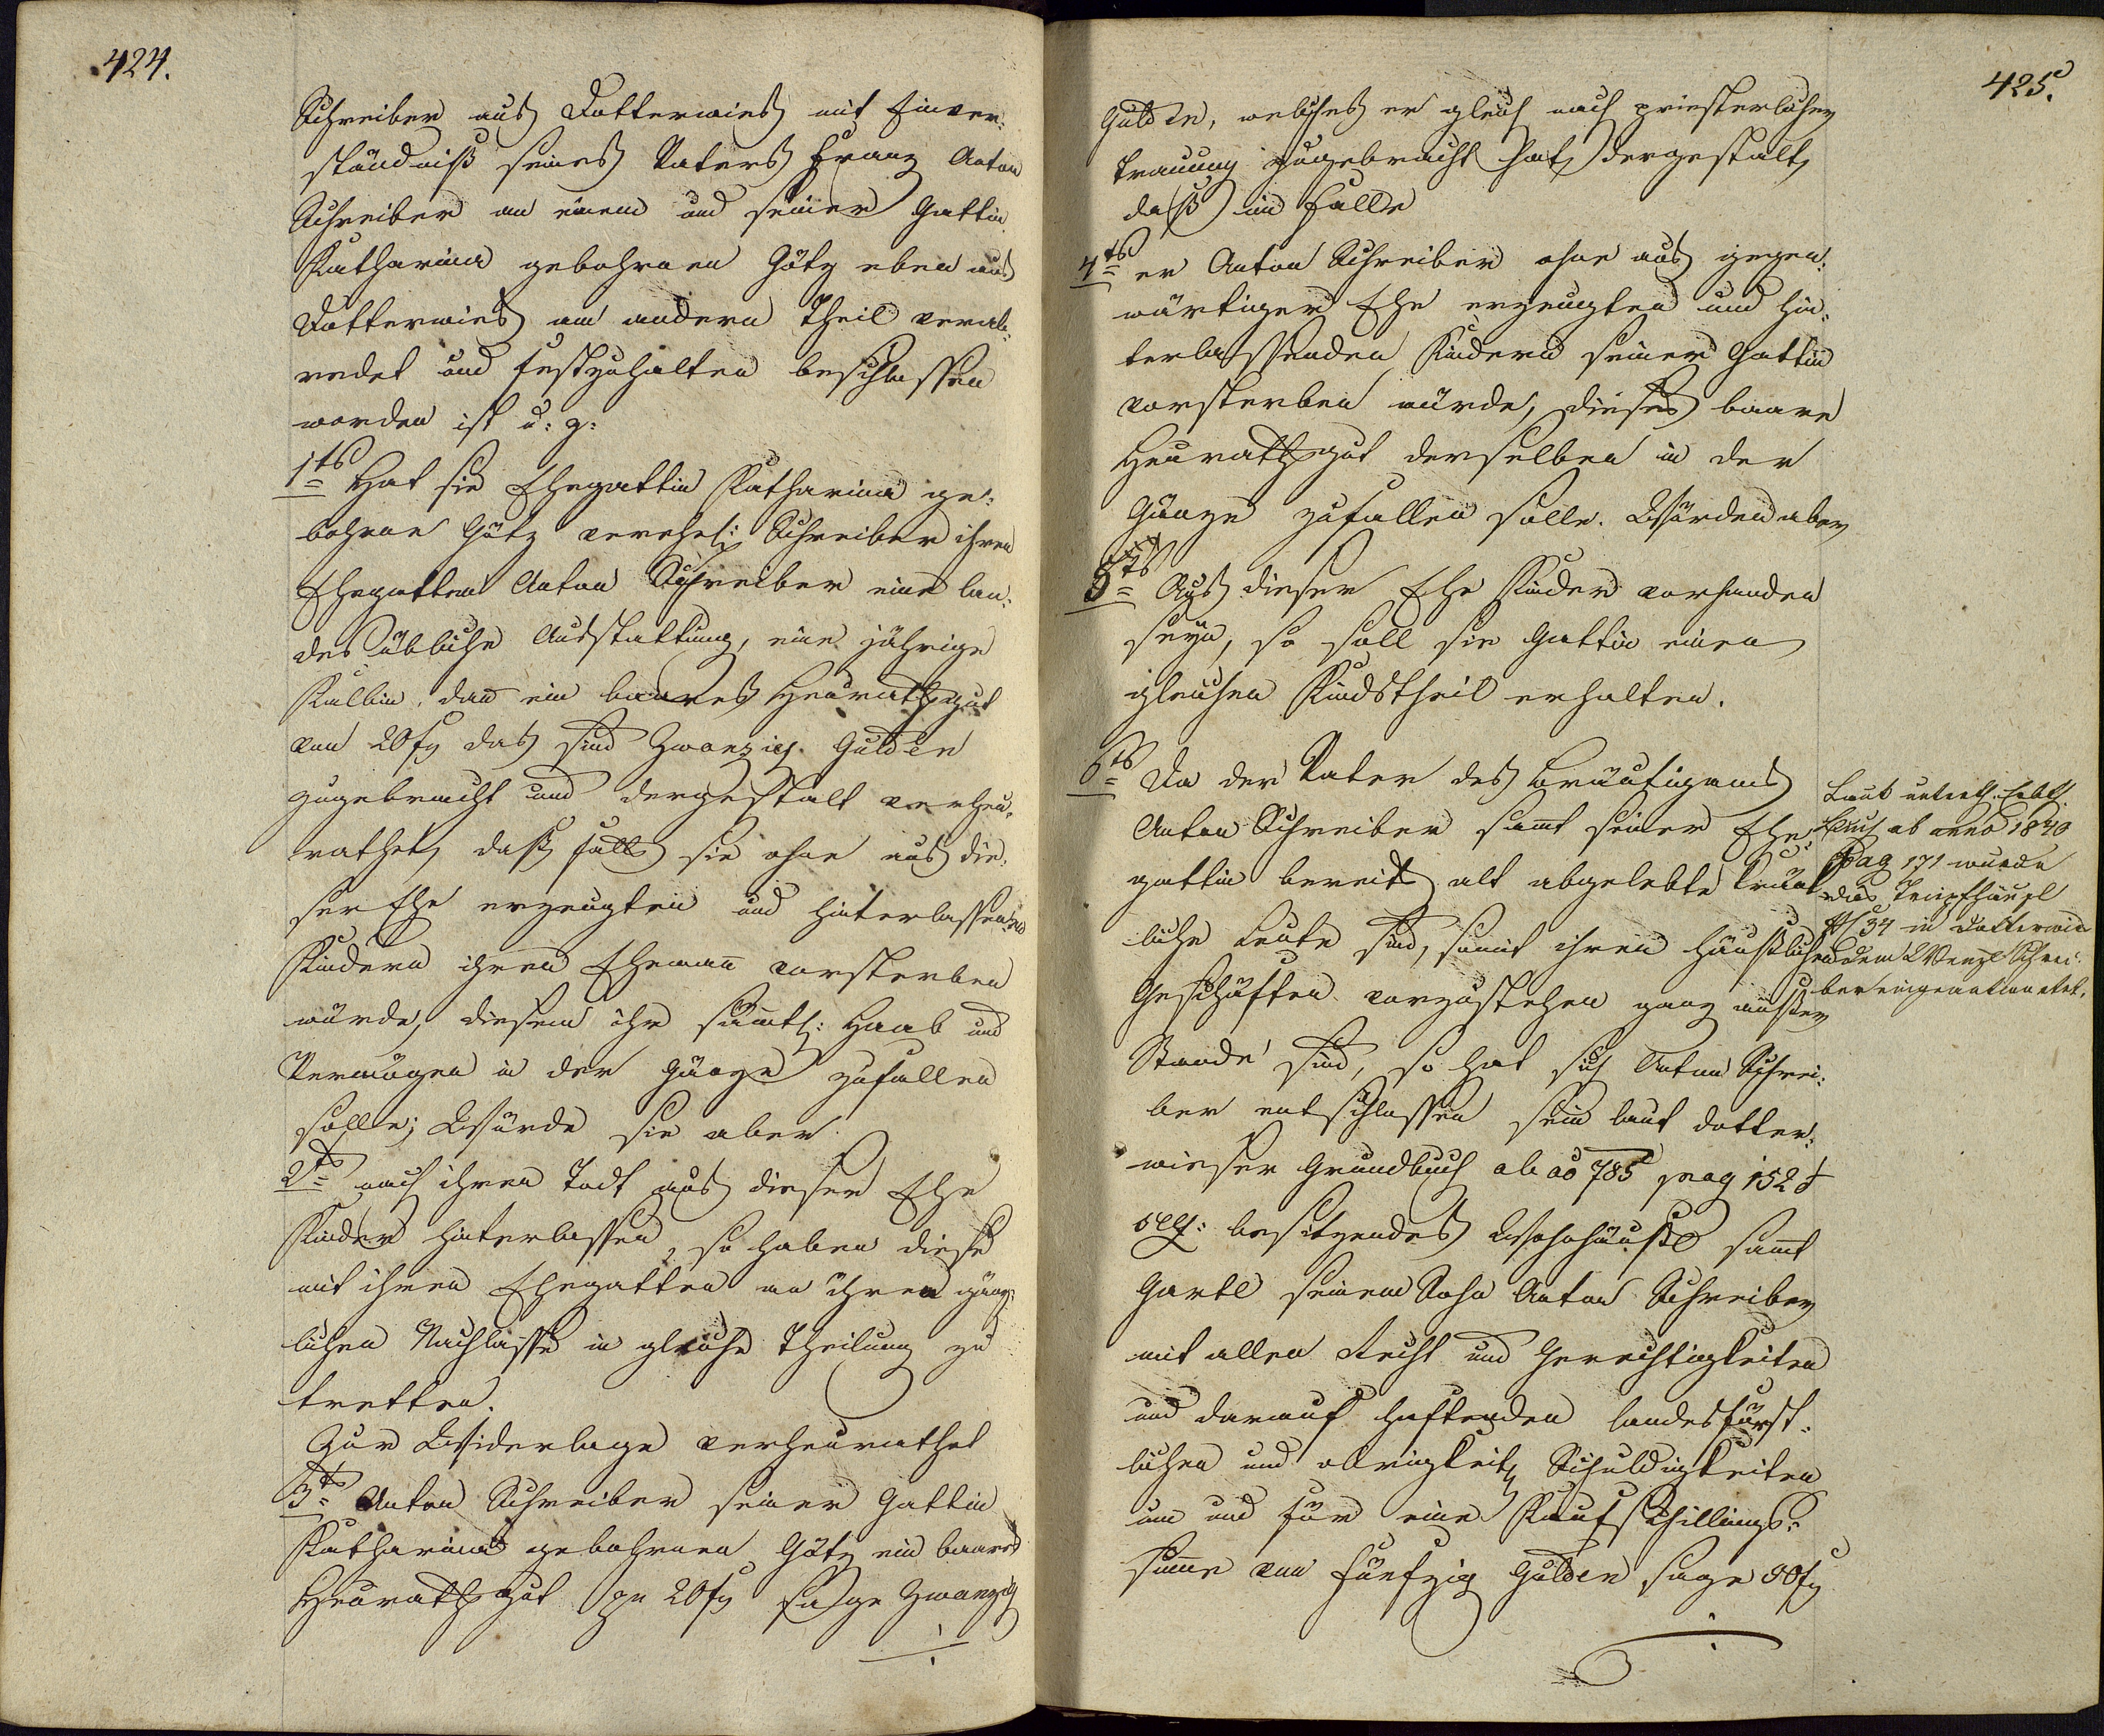 424.
Schreiber aus Dotterwies mit Einver:
ständniß seines Vaters Franz Anton
Schreiber an einem und seiner Gattin
Katharina gebohrnen Götz eben aus
Dotterwies am andern Theil verab:
redet und festzuhalten beschlossen
worden ist u: z:
1ts Hat sie Ehegattin Katharina ge:
bohrne Götz verehel: Schreiber ihren
Ehegatten Anton Schreiber eine lan:
des übliche Ausstattung, eine jährige
Kalbin, dan ein baares Heurathsgut
von 20 fl das sind Zwanzig Gulden
zugebracht und dergestalt verheu:
rathet, daß falls sie ohne aus die:
ser Ehe erzeugten und hinterlassenen
Kindern ihren Ehemann vorsterben
würde, diesem ihr sämtl: Haab und
Vermögen in der Gänze zufallen
solle; Würde sie aber
2ts nach ihren Todt aus dieser Ehe
Kinder hinterlassen, so haben diese
mit ihren Ehegatten an ihren gänz:
lichen Nachlasse in gleiche Theilung zu
tretten.
Zur Widerlage verheurathet
3ts Anton Schreiber seiner Gattin
Katharina gebohrnen Götz ein baares
Heurathsgut pr 20 fl sage Zwanzig
425.
Gulden, welches er gleich nach priesterlicher
Trauung zugebracht hat, dergestalt,
daß im Falle
4ts er Anton Schreiber ohne aus gegen:
wärtiger Ehe erzeugten und hin:
terlassenden Kindern seiner Gattin
vorsterben würde, dieses baare
Heurathsgut derselben in der
Gänze zufallen solle. Würden aber
5ts Aus dieser Ehe Kinder vorhanden
seyn, so soll sie Gattin einen
gleichen Kindstheil erhalten.
6ts Da der Vater des Bräutigams
Anton Schreiber samt seiner Ehe:
gattin bereits alt abgelebte kränk
liche Leute sind, somit ihren häuslichen
Geschäften vorzustehen ganz außer
Stande sind, so hat sich Anton Schrei:
ber entschlossen sein laut Dotter:
wieser Grundbuch ab ao 785 pag 152 &
seq: besitzendes Wohnhäusl samt
Gartl seinem Sohn Anton Schreiber
mit allen Recht und Gerechtigkeiten
und darauf haftenden landesfürst:
lichen und obrigkeitl Schuldigkeiten
um und für eine Kaufschillings:
summe von Fünfzig Gulden sage 50 fl
Laut
Buch ab anno 1840
Pag 171 wurde
das Tripfhäusl
No 34 in Dotterwies
dem Wenzl Schrei:
ber eingeantwortet.